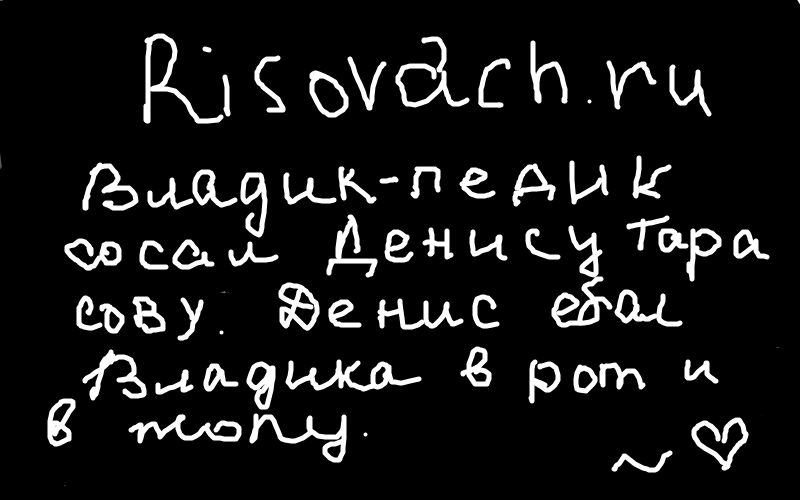 Risovach.ru
Владик-педик
сосал Денису Тара
сову. Денис ебал
Владика в рот и
в жопу.
~ ♡